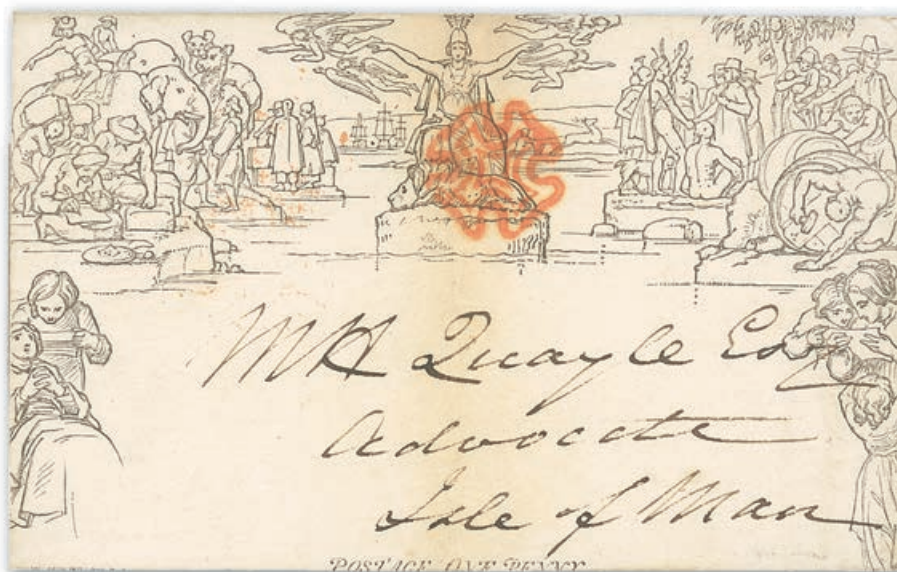 M H Quayle Esq
Advocate
Isle of Man
POSTAGE ONE PENNY